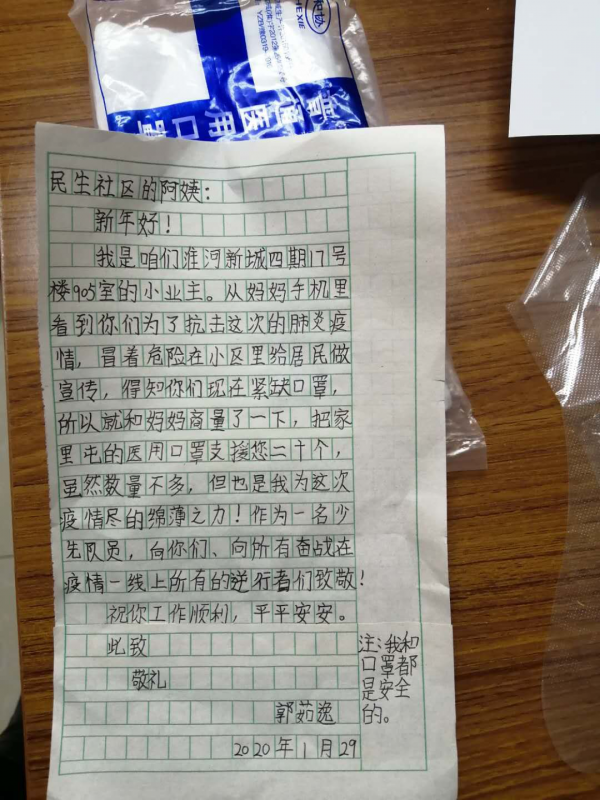 普通医用口罩
民生社区的阿姨:
新年好!
我是咱们淮河新城四期17号
楼905室的小业主。从妈妈手机里
看到你们为了抗击这次的肺炎疫
情,冒着危险在小区里给居民做
宣传,得知你们现在紧缺口罩,
所以就和妈妈商量了一下,把家
里屯的医用口罩支援您二十个,
虽然数量不多,但也是我为这次
疫情尽的绵薄之力!作为一名少
先队员,向你们、向所有奋战在
疫情一线上所有的逆行者们致敬!
祝你工作顺利,平平安安。
此致
敬礼
郭茹逸
2020年1月29
注:我和
口罩都
是安全
的。